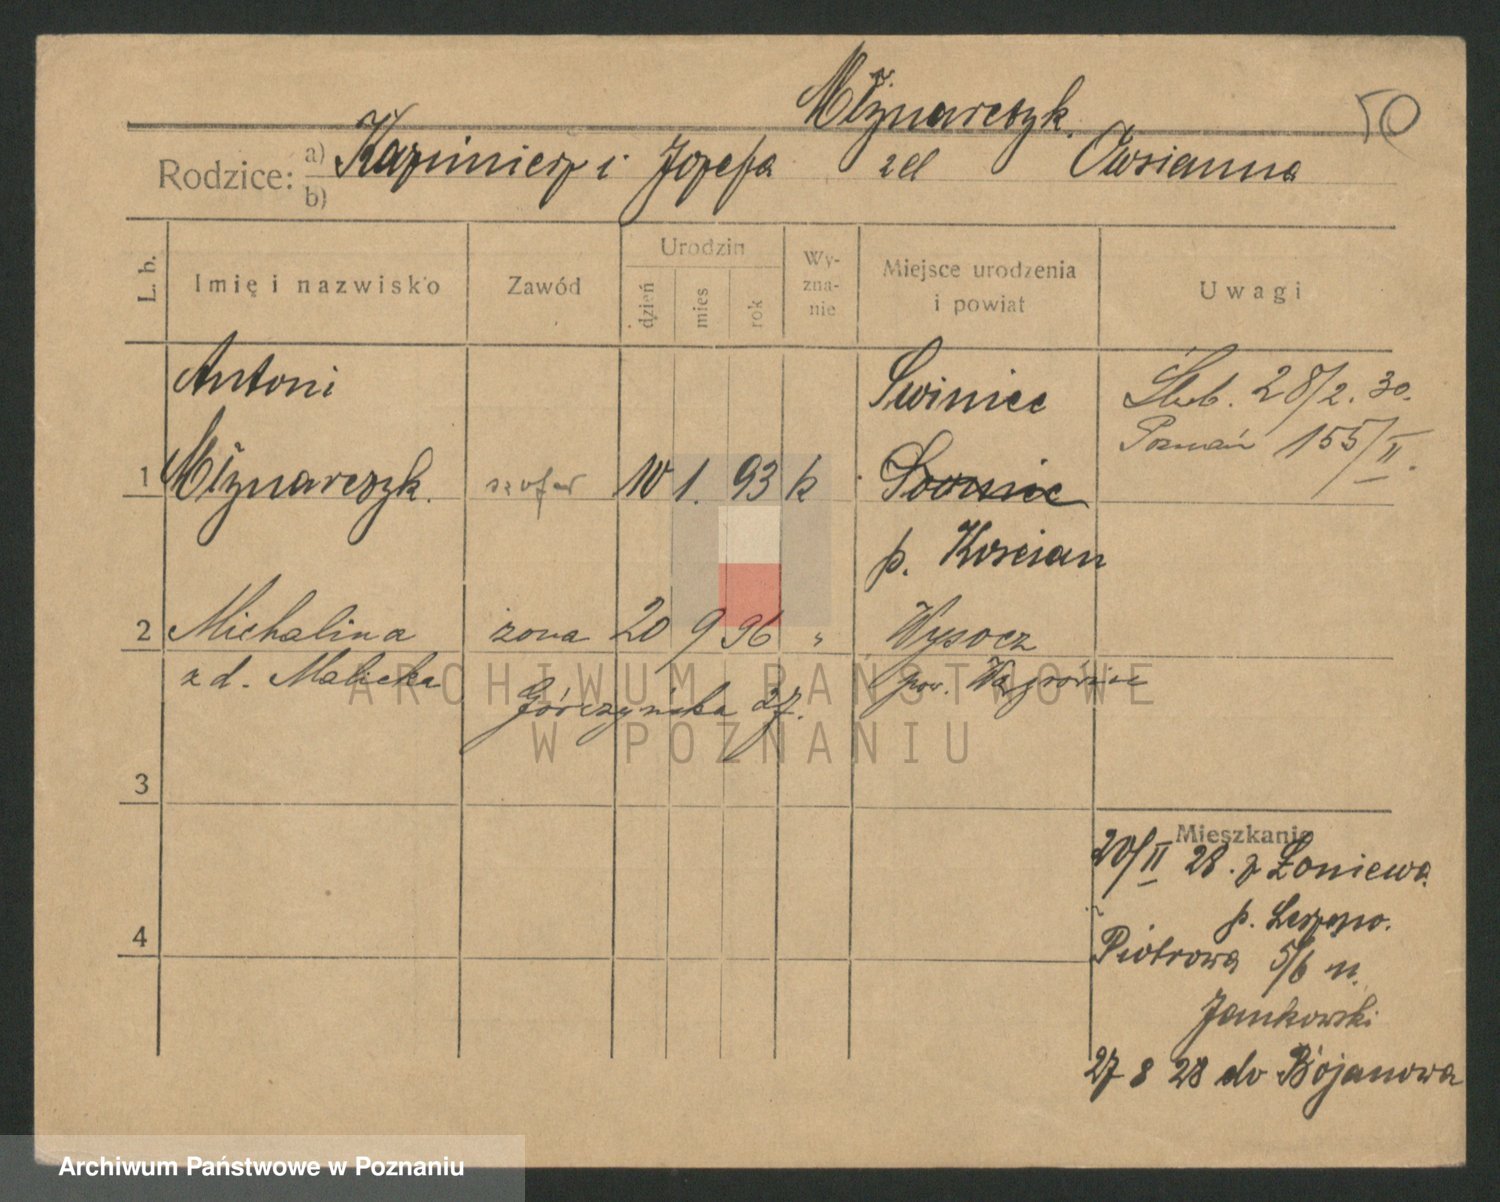 Młynarczyk.
50
Rodzice: a) Kazimierz i Józefa z d Owsianna
b)
L. b. Imię i nazwisko Zawód Urodzin dzień mies rok Wyznanie Miejsce urodzenia i powiat Uwagi
Antoni Swiniec Ślub. 28/2. 30.
Poznań 155/II.
1 Młynarczyk. szofer 10 1. 93 k
p. Kościan
2 Michalina żona 20 9 96 " Wysocz
z d. Malicka pow. Wągrówiec
Górczyńska 27.
3
4
Mieszkanie
20/II 28. z Łoniewa
p. Leszno.
Piotrowa 5/6 u.
Jankowski
27 8 28 do Bojanowa
ARCHIWUM PAŃSTWOWE
W POZNANIU
Archiwum Państwowe w Poznaniu